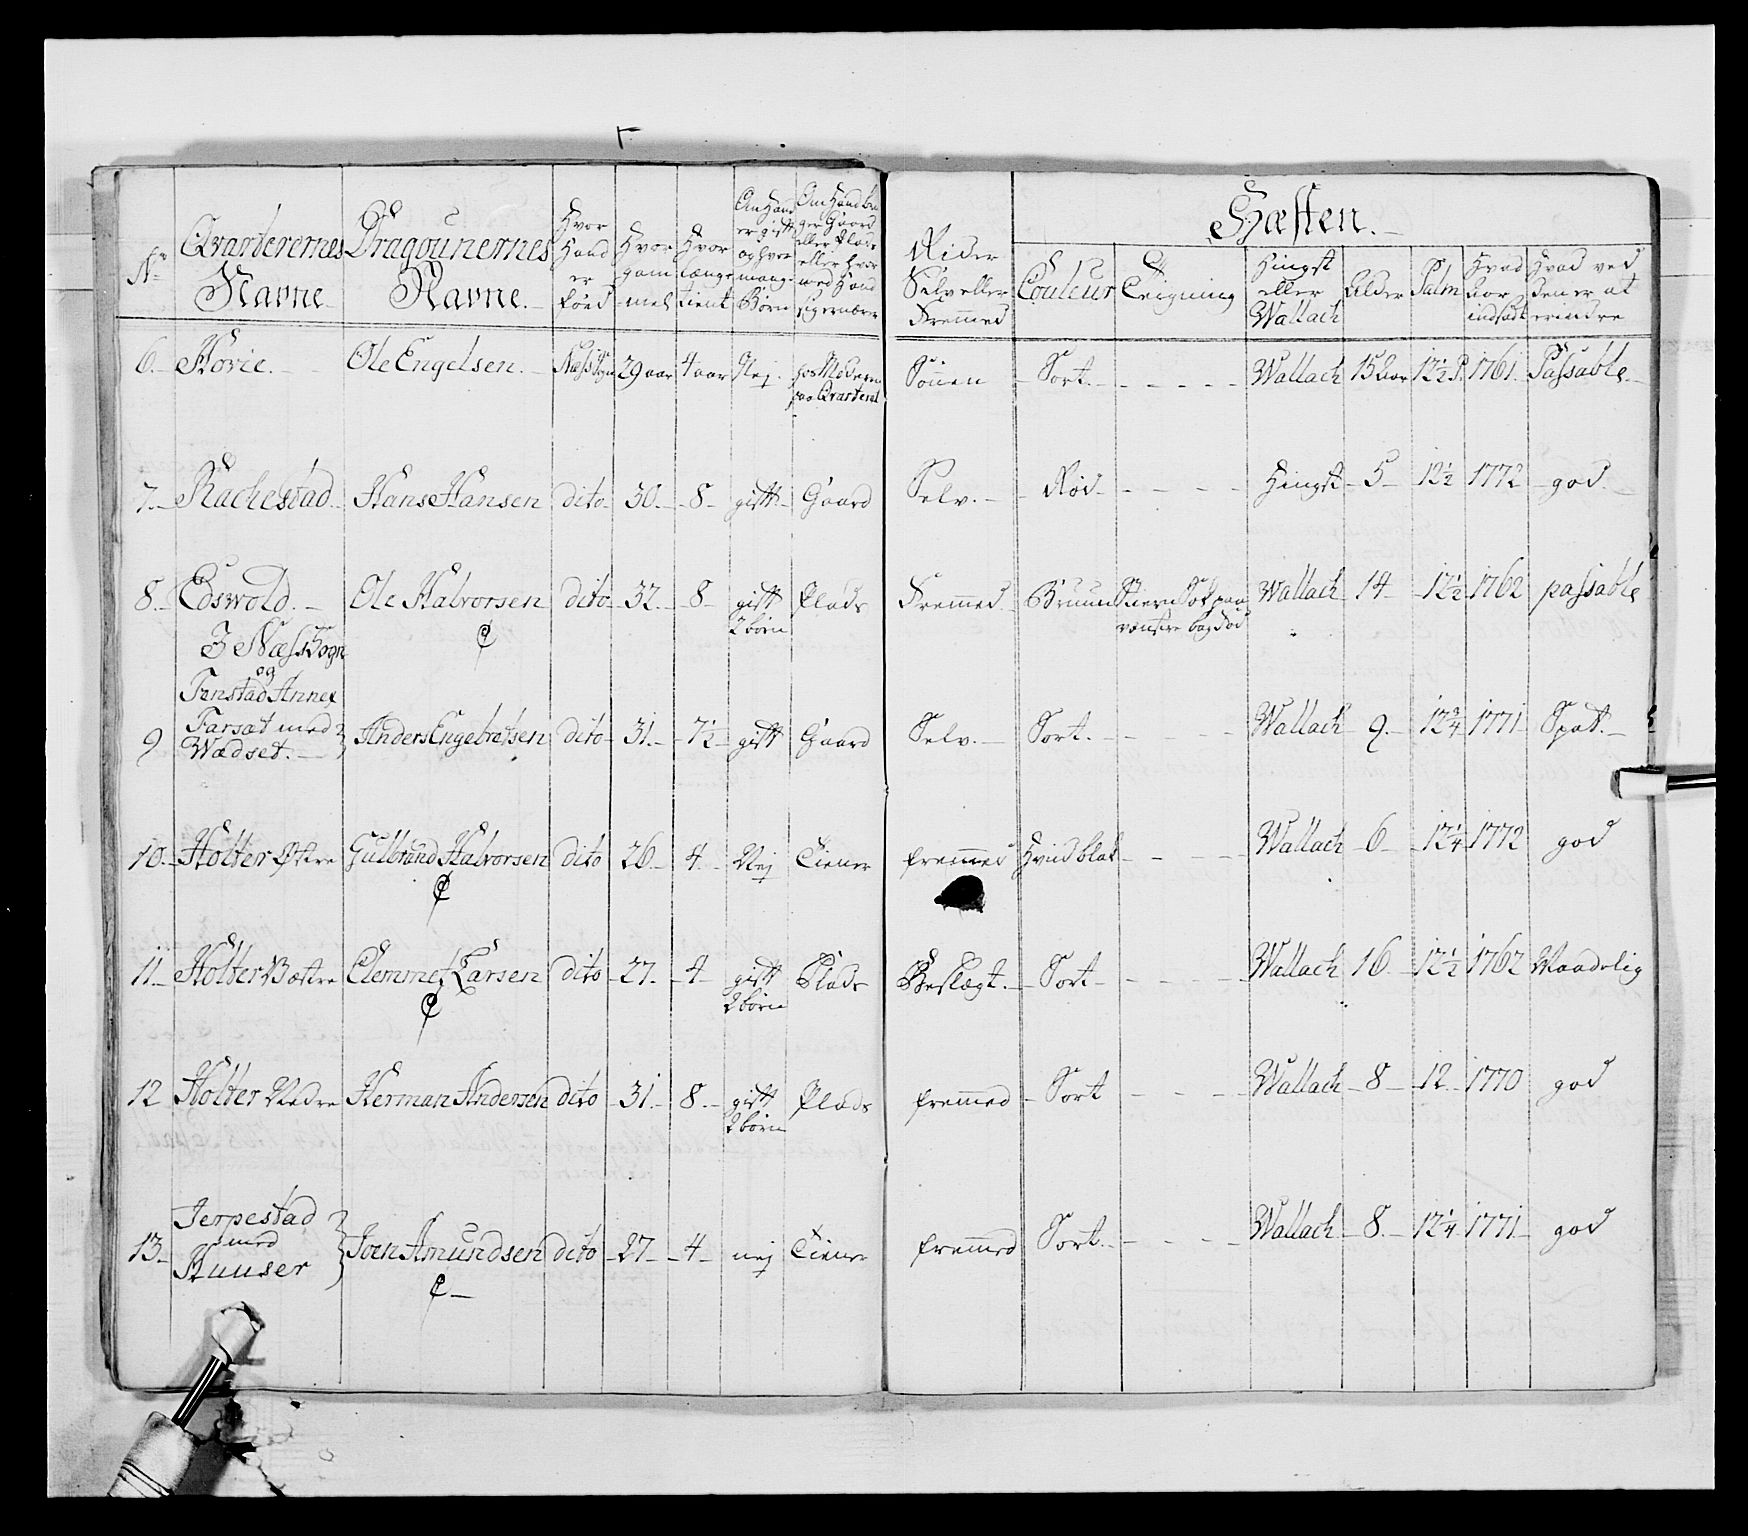 Nº
Qvarterernes Navne
Dragounernes Navne.
Hvor Hand er föed
Hvor gammel
Hvor længe tient
Om Hand er gift og hvor mange Börn
Om Hand bruger Gaard eller Plads eller hvor med Hand sig ernærer
Rider Selv eller Fremmed
Hæsten.
Couleur
Teigning
Hingst eller Wallach
Alder
Palm
Hvad Aar indsadt
Hvad ved den er at erindre
6. Hovie. Ole Engelsen. Næss Sogn 29 aar 4 aar Nej. hos Moderen paa Qvarteret Sönen Sort. Wallach 15 aar 12½ P. 1761. Passable.
7. Rachestad Hans Hansen dito 30. 8 gift Gaard Selv. Röd Hingst 5 12½ 1772 god.
8. Edswold. Ole Halvorsen dito 32. 8 gift 2 börn Plads Fremmed Bruun Stiern Sok paa venstre bag Fod Wallach 14 12½ 1762 passable
I Næss Sogn
og
Fenstad Annex
9 Farsæt med Wædset. Anders Engebretsen dito 31. 7½ gift Gaard Selv. Sort. Wallach 9. 12¾ 1771 Spat.
10. Holter Östre Gulbrand Halvorsen dito 26. 4. Nej Tiener fremmed Hvidblak Wallach 6 12¼ 1772 god
11. Holter Væstre Clemmet Larsen dito 27. 4 gift 2 börn Plads Beslægt. Sort Wallach 16 12½ 1762 Maadelig
12 Holter Nedre Herman Andersen dito 31. 8. gift 2 börn Plads fremmed Sort Wallach 8 12 1770 god
13. Jerpestad med Huuser Joen Amundsen dito 27 4 nej Tiener fremmed Sort. Wallach 8. 12¼ 1771. god